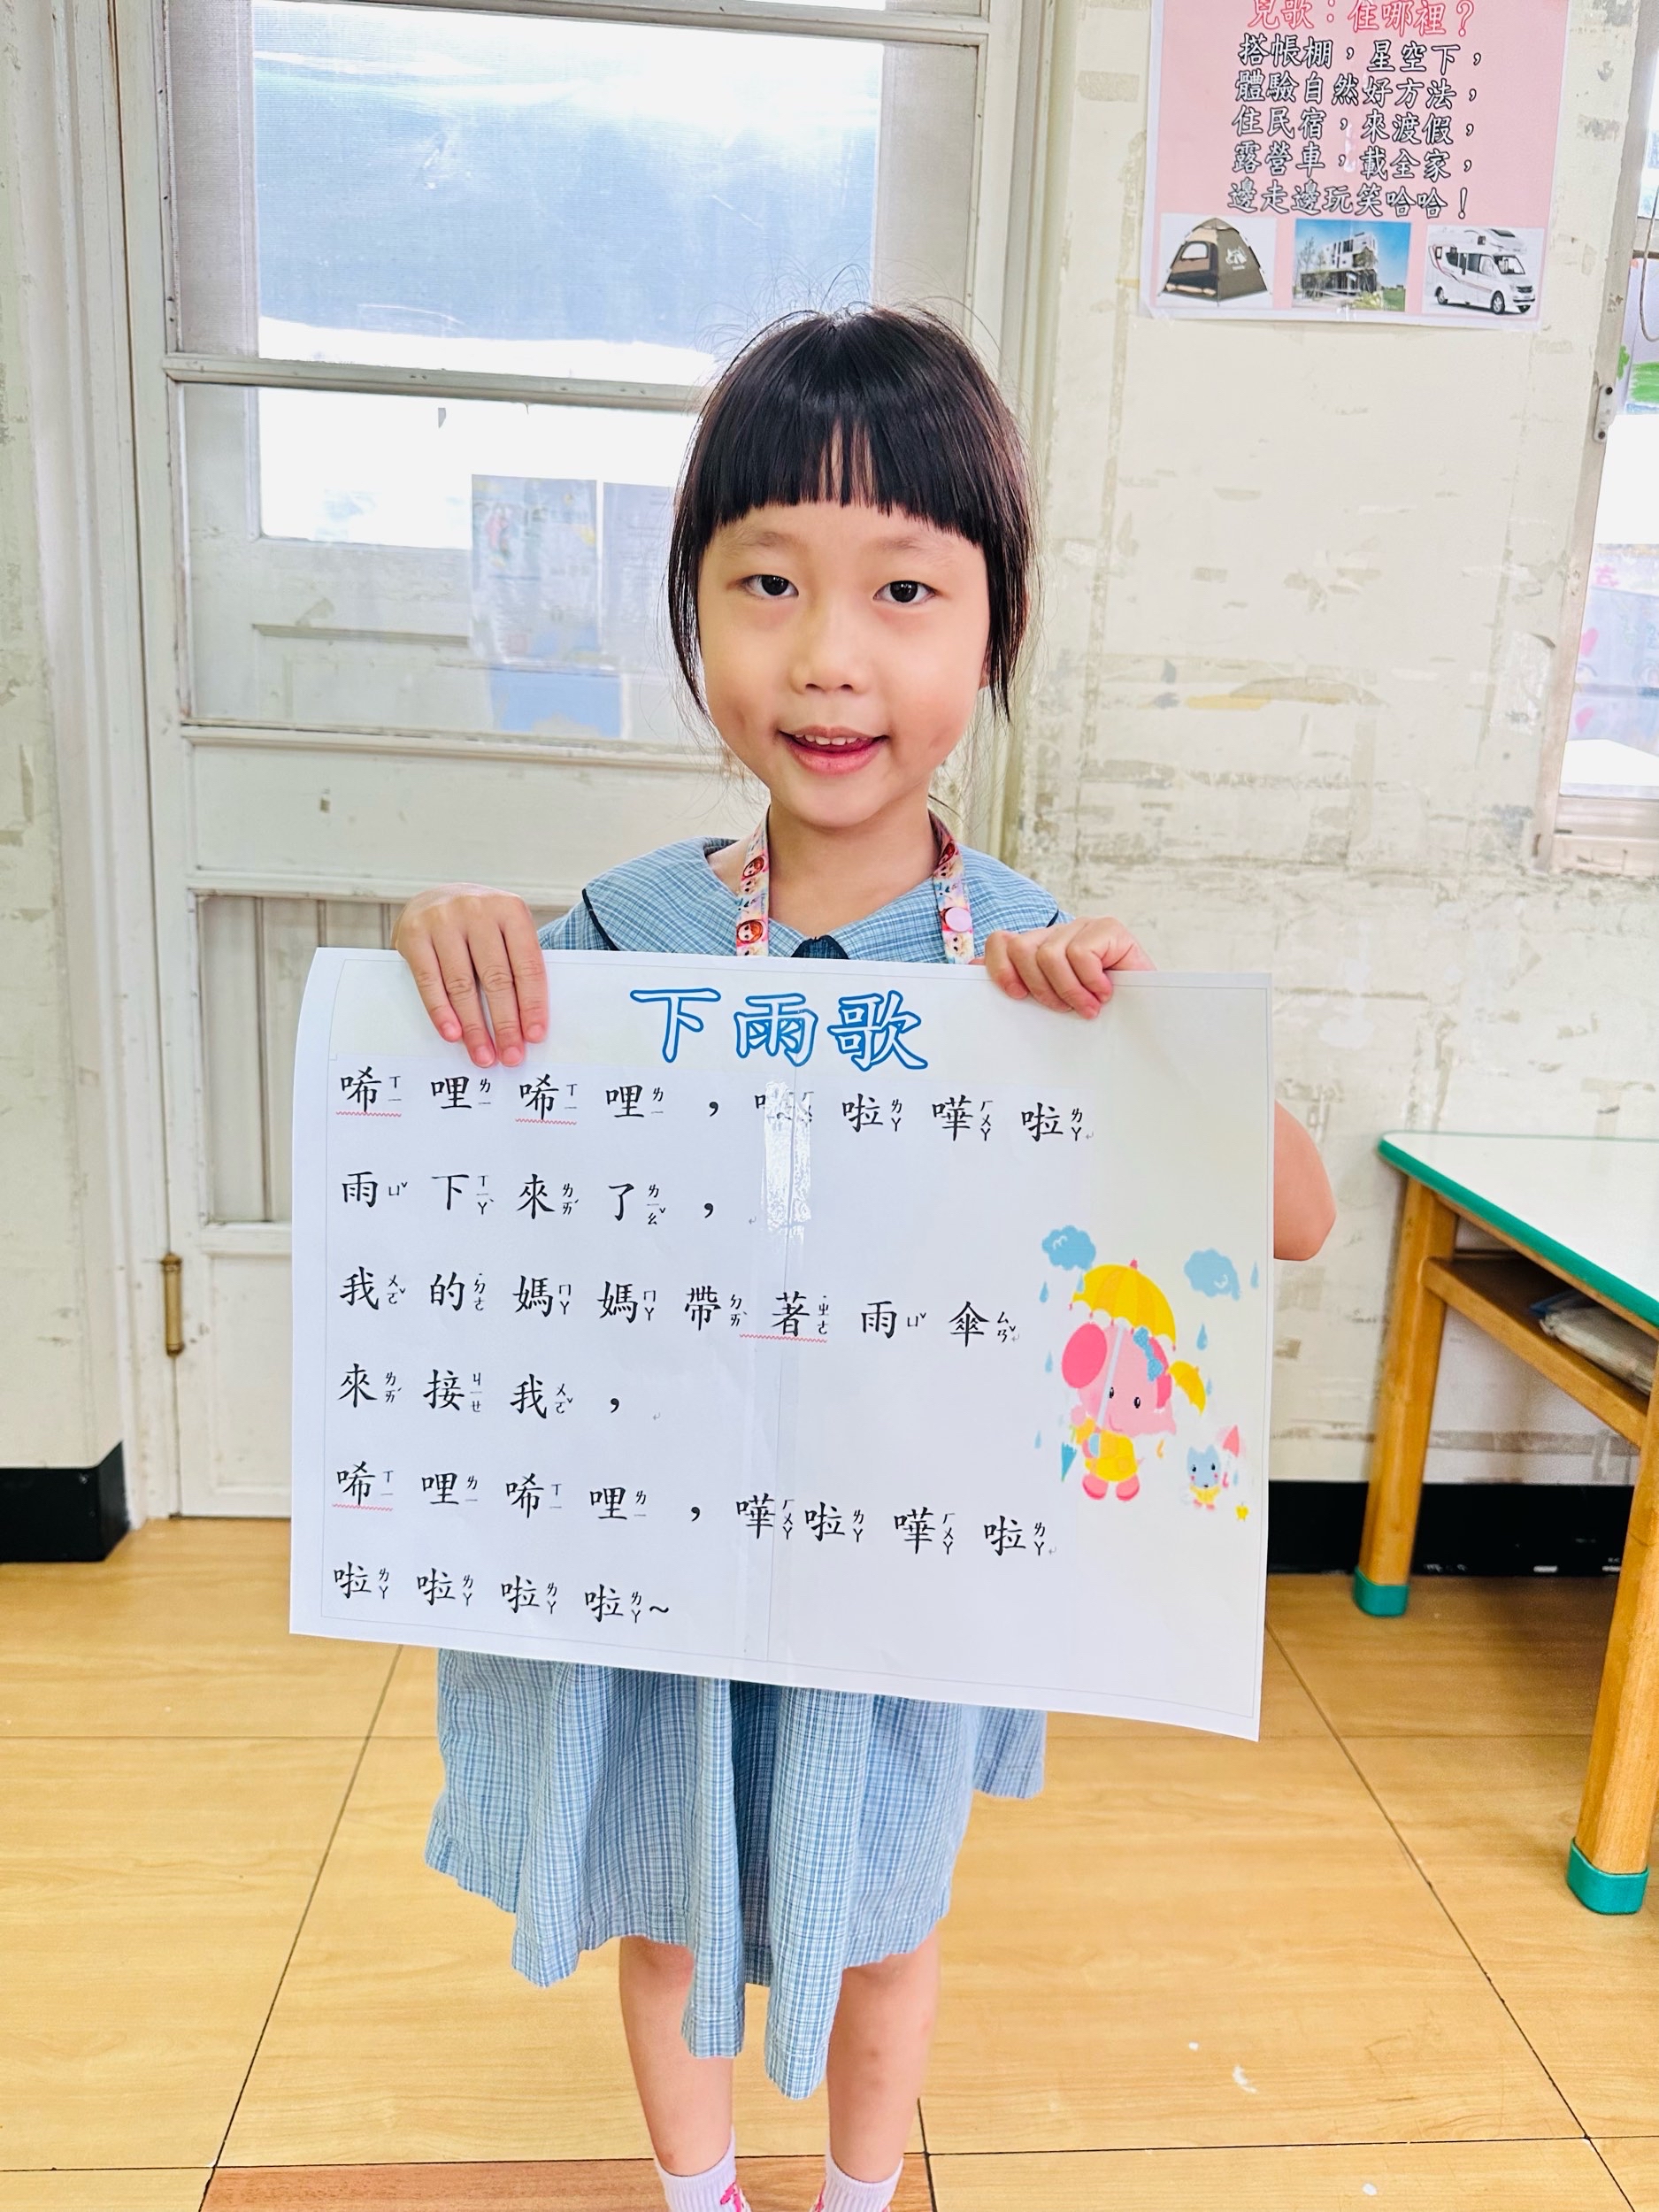 兒歌：住哪裡？
搭帳棚，星空下，
體驗自然好方法，
住民宿，來渡假，
露營車，載全家，
邊走邊玩笑哈哈！
下雨歌
唏ㄒㄧ哩ㄌㄧ唏ㄒㄧ哩ㄌㄧ，啦ㄌㄚ嘩ㄏㄨㄚ啦ㄌㄚ
雨ㄩˇ下ㄒㄧㄚˋ來ㄌㄞˊ了ㄌㄧㄠˇ，
我ㄨㄛˇ的˙ㄉㄜ媽ㄇㄚ媽ㄇㄚ帶ㄉㄞˋ著˙ㄓㄜ雨ㄩˇ傘ㄙㄢˇ
來ㄌㄞˊ接ㄐㄧㄝ我ㄨㄛˇ，
唏ㄒㄧ哩ㄌㄧ唏ㄒㄧ哩ㄌㄧ，嘩ㄏㄨㄚ啦ㄌㄚ嘩ㄏㄨㄚ啦ㄌㄚ
啦ㄌㄚ啦ㄌㄚ啦ㄌㄚ啦ㄌㄚ~